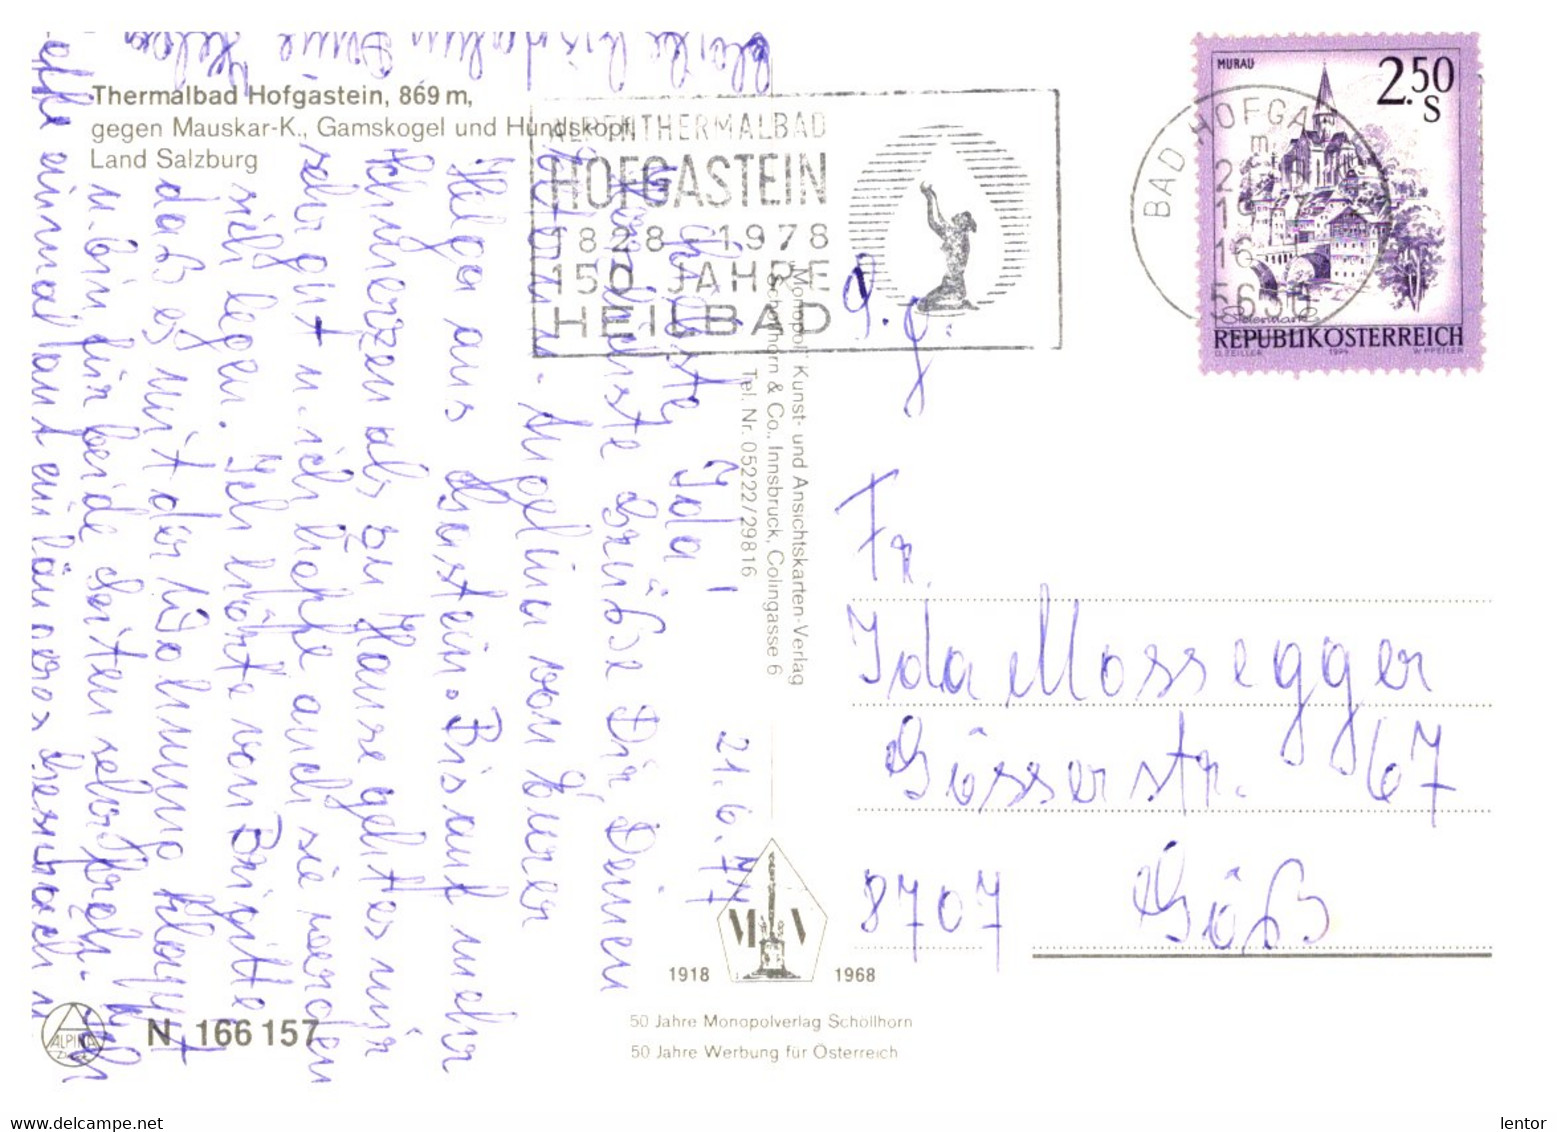 Thermalbad Hofgastein, 869 m,
gegen Mauskar-K., Gamskogel und Hundskopf,
Land Salzburg
ALPENTHERMALBAD
HOFGASTEIN
1828 1978
150 JAHRE
HEILBAD
BAD HOFGA
5630
MURAU
2.50
S
Steiermark
REPUBLIK ÖSTERREICH
O. ZEILLER 1974 W. PFEILER
21.6.77
Ida!
Grüße Dir, Deinen
von Eurer
Helga aus Gastein. Bis auf mehr
Schmerzen als zu Hause geht es mir
sehr gut u. ich hoffe auch sie werden
sich legen. Ich hörte von Brigitte
daß es mit der Wohnung klappt
u. bin für beide Seiten sehr froh. Ich
hoffe einmal auf ein längeres
"Monopol" Kunst- und Ansichtskarten-Verlag
Schöllhorn & Co., Innsbruck, Colingasse 6
Tel. Nr. 05222/29816
Fr.
Ida Mossegger
Gösserstr. 67
8707 Göß
M V
1918 1968
50 Jahre Monopolverlag Schöllhorn
50 Jahre Werbung für Österreich
ALPINA
N 166 157
delcampe.net
lentor